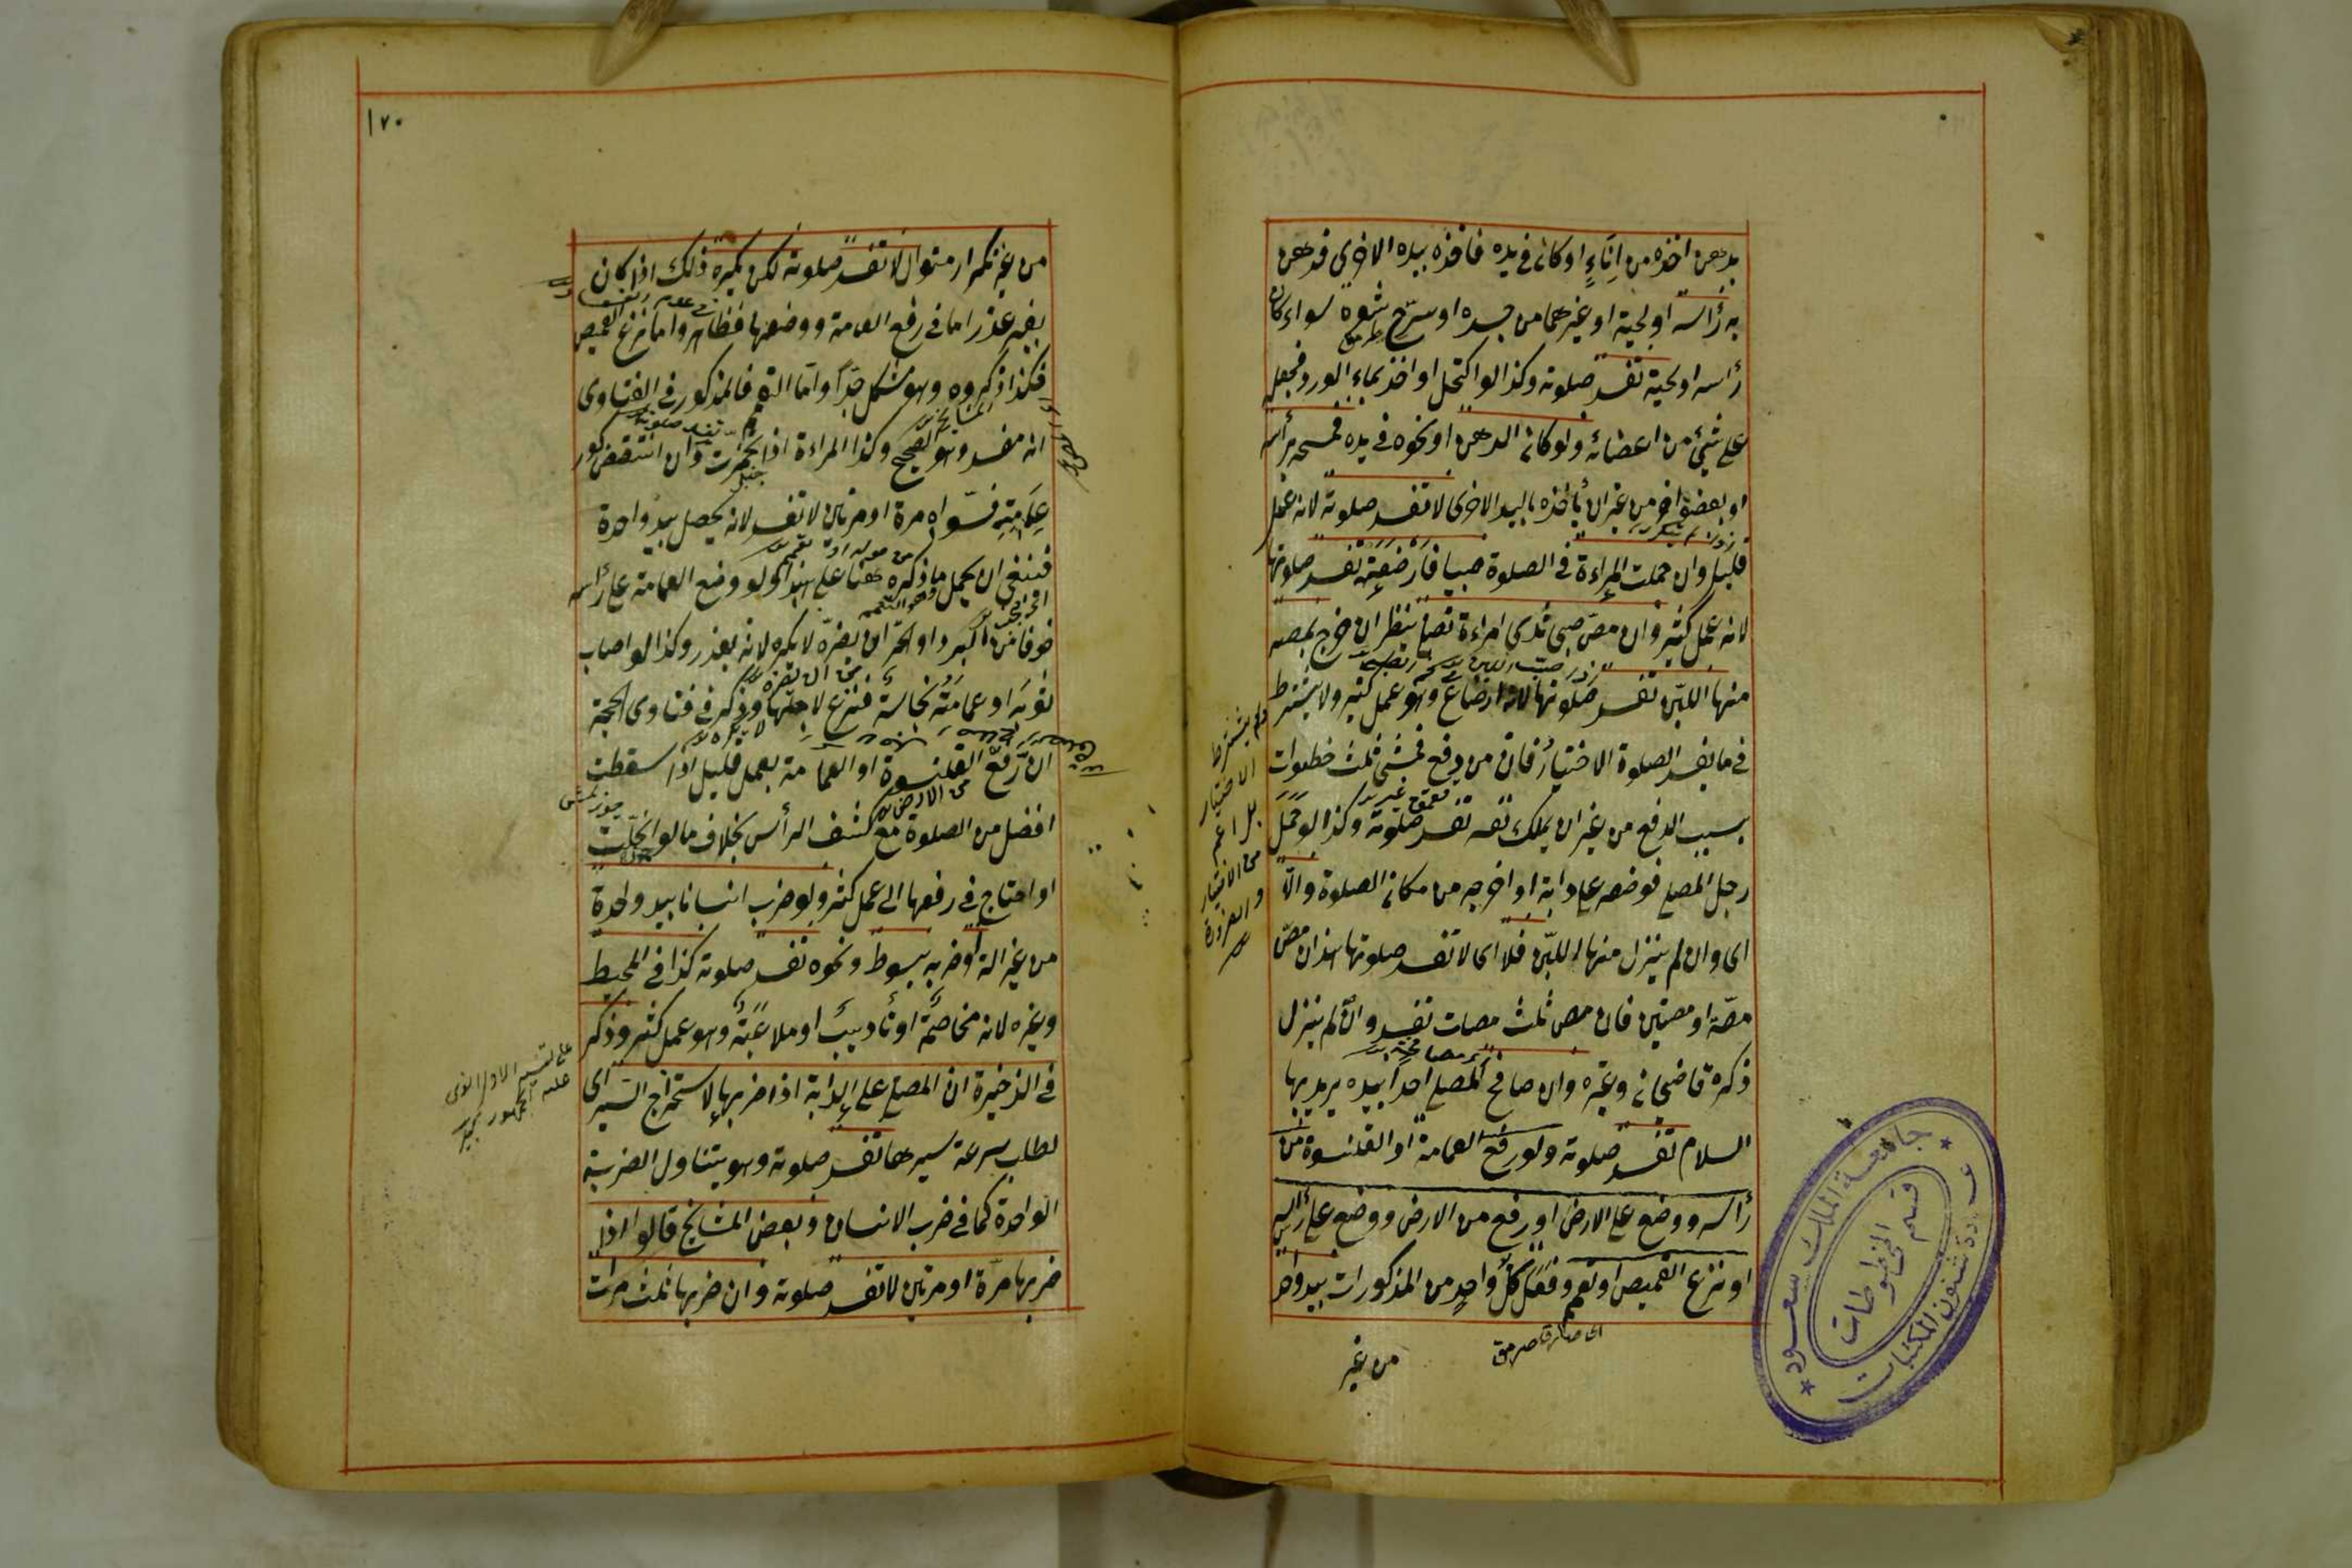 بدهن اخذه من اِناءٍ او كان في يده فاخذه بيده الاخرى فدهن
به رأسه او لحيته او غيرهما من جسده او سرّح شعره سواء كان
رأسه او لحيته تفسد صلوته وكذا لو اكتحل او اخذ بماء الورد فجعل
على شئ من اعضائه ولو كان الدهن او نحوه في يده فمسحه برأسه
او بعضو اخر من غير ان يأخذه باليد الاخرى لا تفسد صلوته لانه عمل
قليل وان حملت المراءة في الصلوة صبيا فارضعته تفسد صلوتها
لانه عمل كثير وان مصّ صبى ثدى امراءة تصلى ينظر ان خرج بمصه
منها اللبن تفسد صلوتها لانه ارضاع وهو عمل كثير ولا يشترط
في ما يفسد الصلوة الاختيار فان من دفع فمشى ثلث خطوات
بسبب الدفع من غير ان يملك نفسه تفسد صلوته وكذا لو حمل
رجل المصلى فوضعه على دابة او اخرجه من مكان الصلوة والّا
اى وان لم ينزل منها اللبن فلا اى لا تفسد صلوتها هذا ان مصّ
مصّة او مصتين فان مص ثلث مصات تفسد وان لم ينزل
ذكره قاضيخان وغيره وان صافح المصلى احدا بيده يريد بها
السلام تفسد صلوته ولو رفع العمامة او القلنسوة من
رأسه ووضع على الارض او رفع من الارض ووضع على رأسه
او نزع القميص او تعمم وفعل كل واحد من المذكورات بيد واحد
من غير
ولم يشترط
الاختيار
بل اعم
من الاختيار
والضرورة
جامعة الملك سعود
قسم المخطوطات
عمادة شئون المكتبات
١٧٠
من غير تكرار متوال لا تفسد صلوته لكن يكره ذلك اذا كان
بغير عذر اما في رفع العمامة ووضعها فظاهر واما نزع القميص
فكذا ذكروه وهو مشكل جدّاً وامّا التعمم فالمذكور في الفتاوى
انه مفسد وهو الصحيح وكذا المراءة اذا تخمرت وان انتقض كور
عمامته فسواه مرة او مرتين لا تفسد لانه يحصل بيد واحدة
فينبغي ان يحمل ما ذكره هنا على هذا ولو وضع العمامة على رأسه
خوفا من البرد او الحر ان يضره لا يكره لانه بعذر وكذا لو اصاب
ثوبه او عمامته نجاسة فنزع لاجلها وذكر في فتاوى الحجة
ان رفع القلنسوة او العمامة بعمل قليل اذا سقطت
افضل من الصلوة مع كشف الرأس بخلاف ما لو انحلّت
او احتاج في رفعها الى عمل كثير ولو ضرب انسانا بيد واحدة
من غير الة او ضربه بسوط ونحوه تفسد صلوته كذا في المحيط
وغيره لانه مخاصمة او تأديب او ملاعبة وهو عمل كثير وذكر
في الذخيرة ان المصلى على الدابة اذا ضربها لاستخراج السير اى
لطلب سرعة سيرها تفسد صلوته وهو يتناول الضربة
الواحدة كما في ضرب الانسان وبعض المشايخ قالوا اذا
ضربها مرّة او مرتين لا تفسد صلوته وان ضربها ثلث مرات
على تفسير الاول الذى
عليه الجمهور